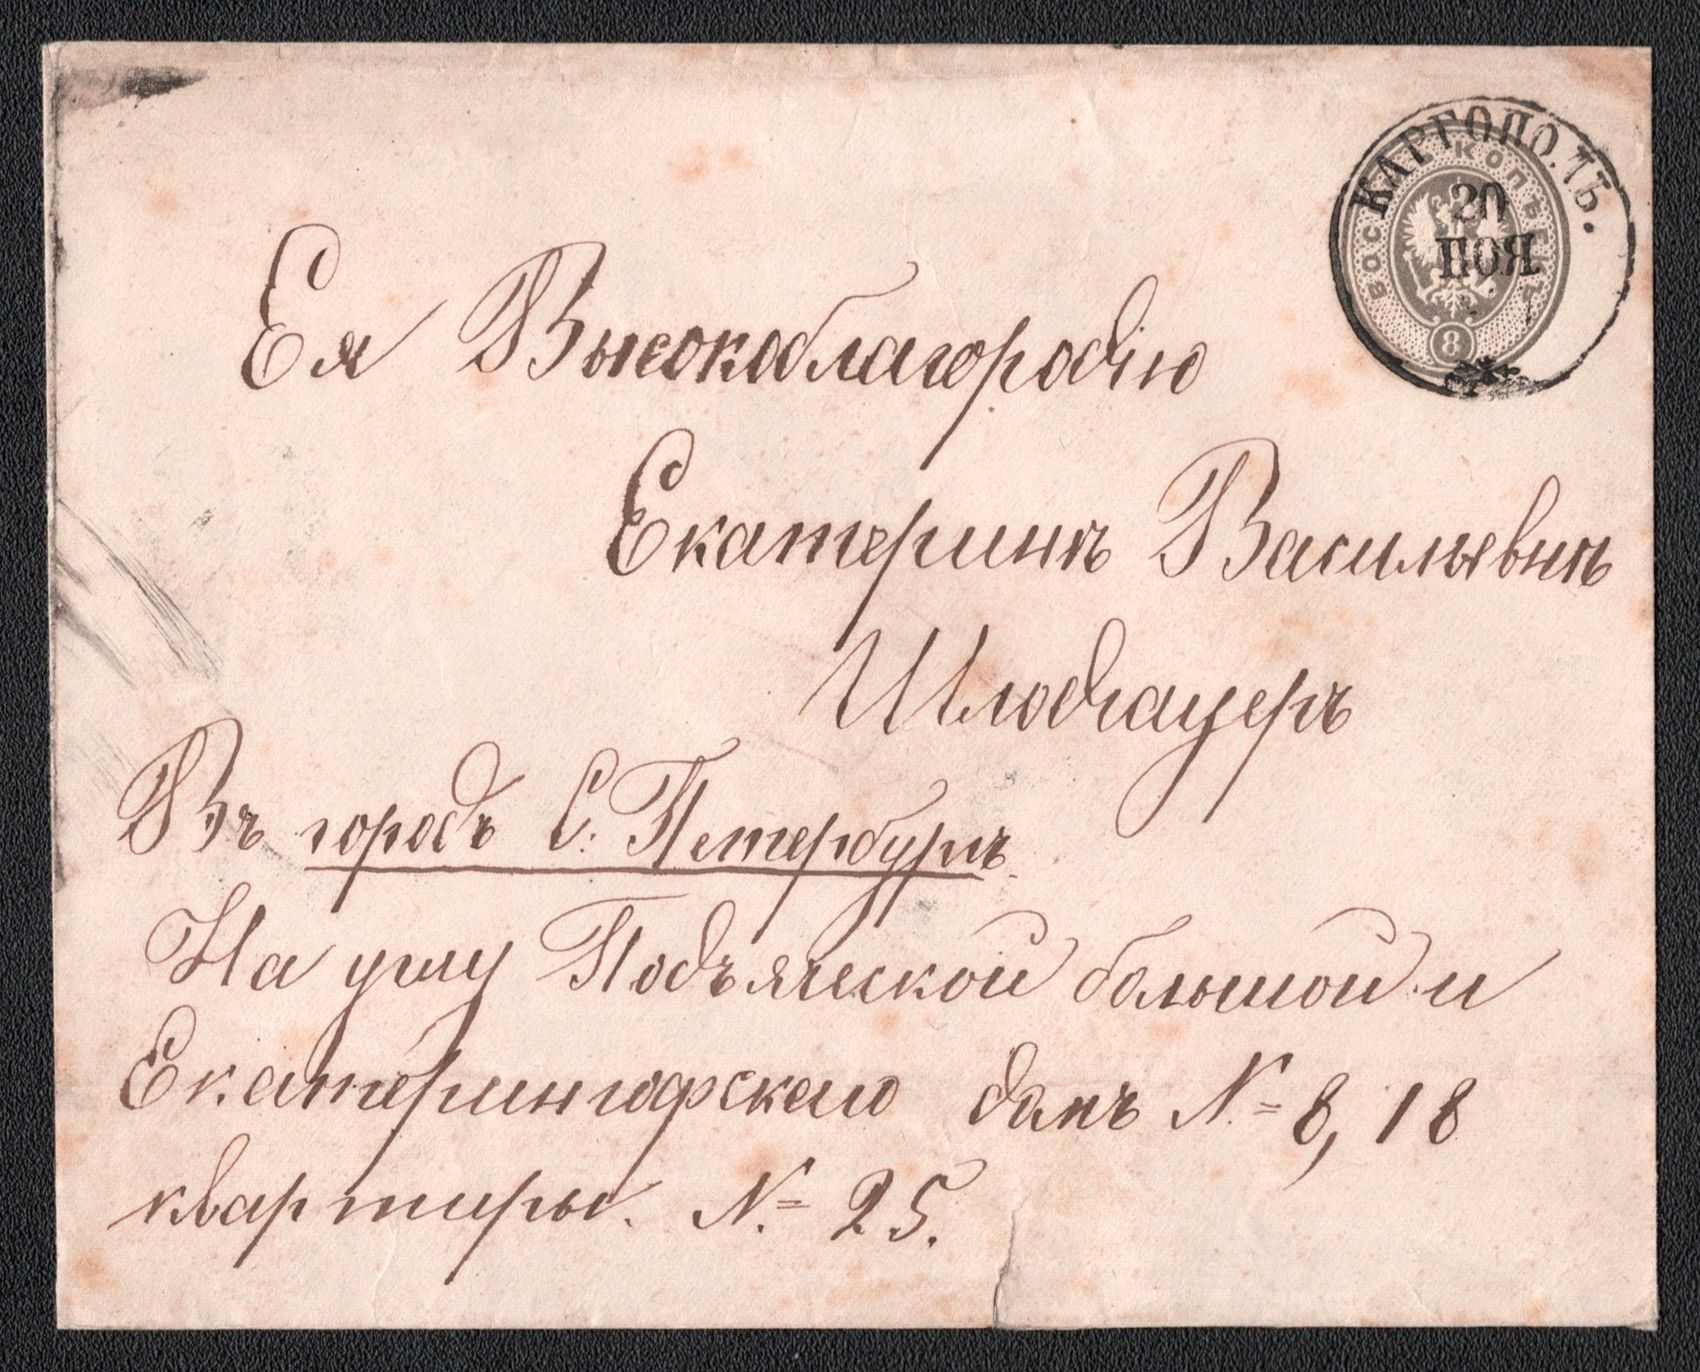 КАРГОПОЛЬ.
20
НОЯ
ВОСЕМЬ КОПѢЕКЪ
8
Ея Высокоблагородiю
Екатеринѣ Васильевнѣ
Въ городъ С. Петербургъ.
На углу Подъяческой большой и
Екатерингофскаго домъ № 8, 18
квартиры. № 25.